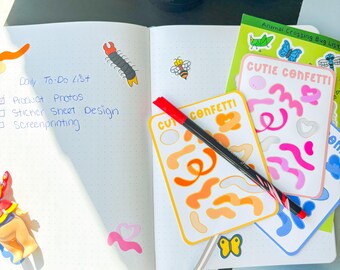 Daily To-Do List
Product Photos
Sticker Sheet Design
Screenprinting
Animal Crossing Bug List
CUTIE CONFETTI
CUTIE CONFETTI